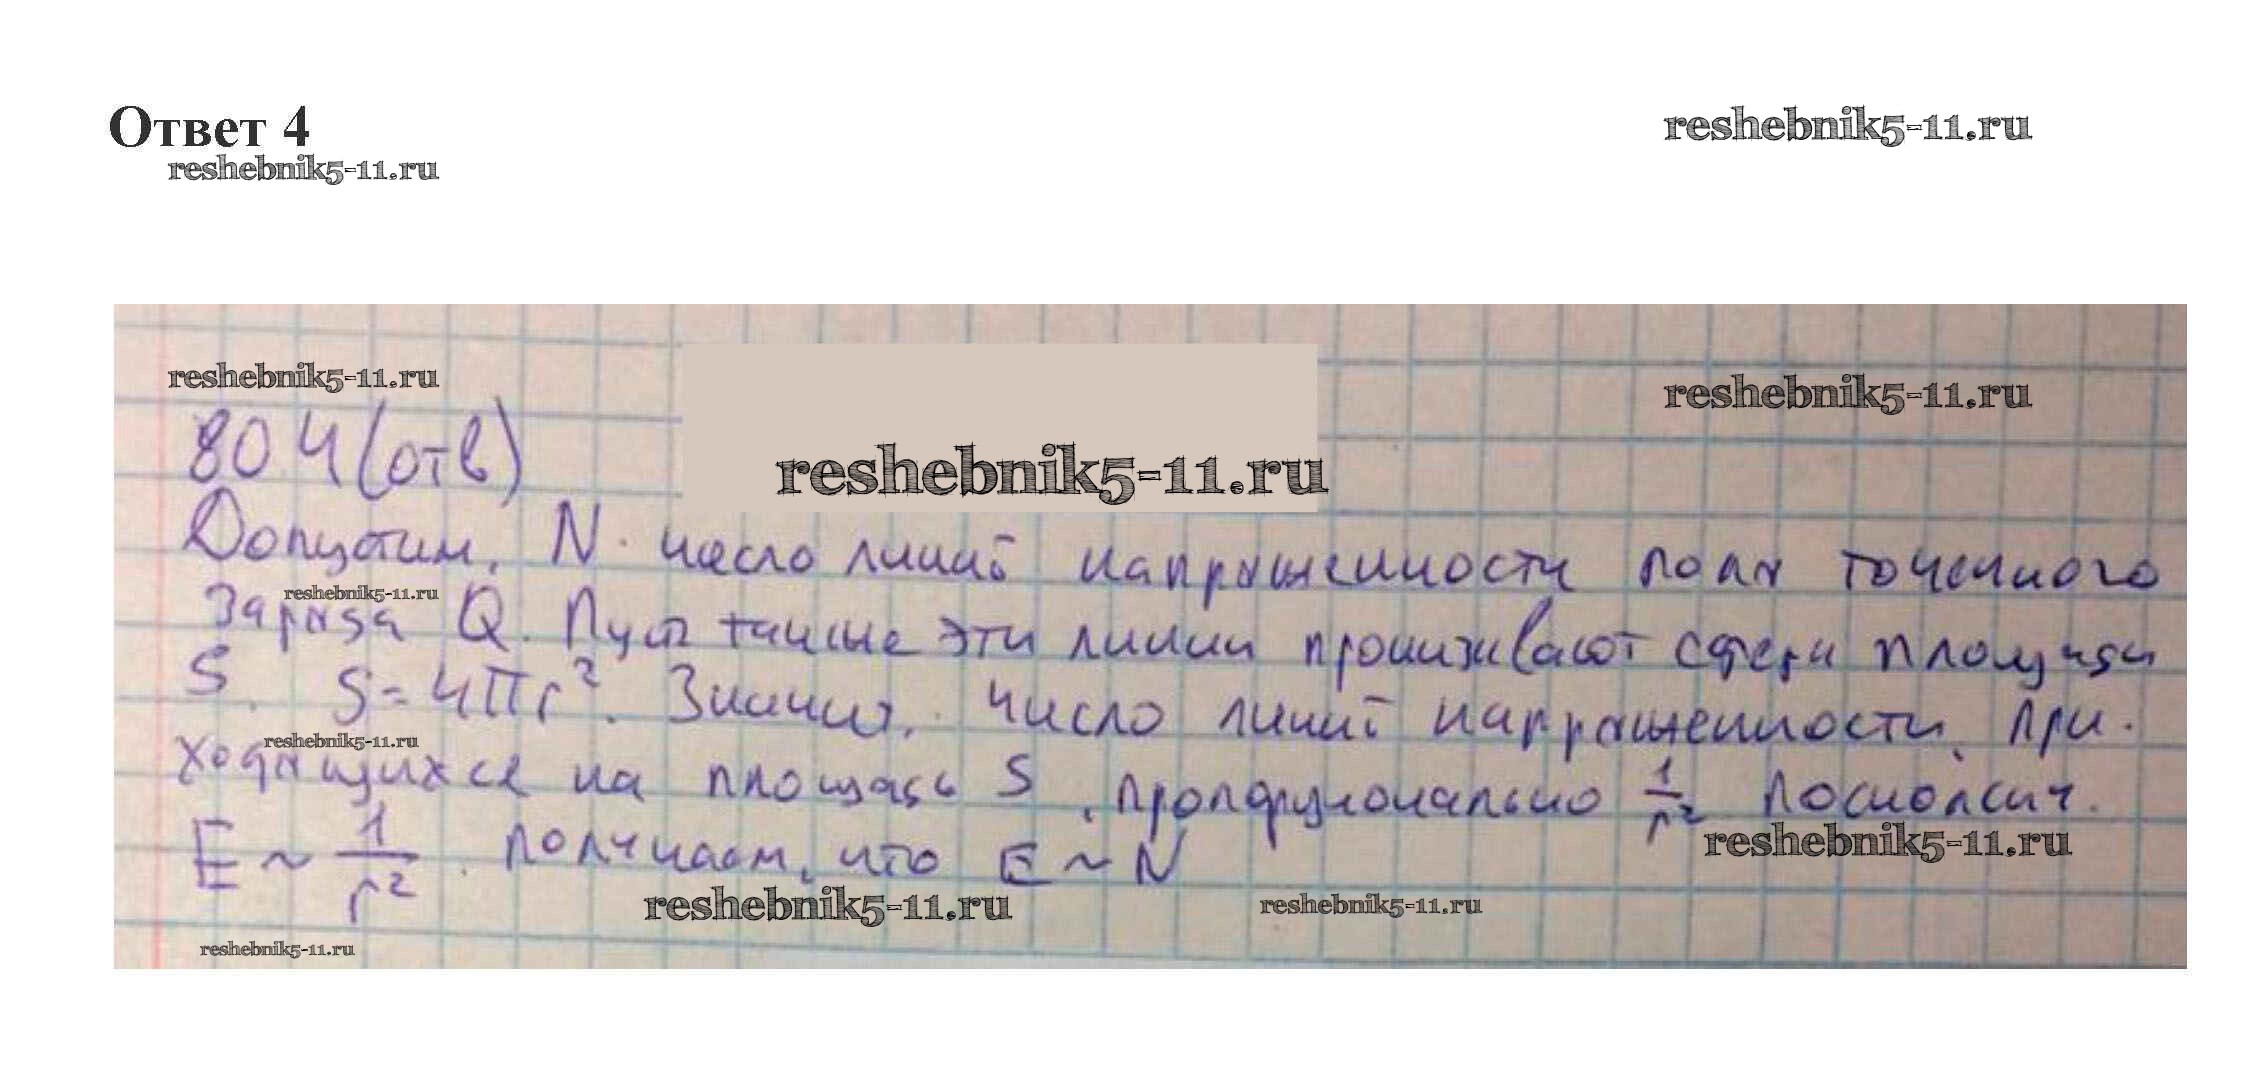 Ответ 4
reshebnik5-11.ru
reshebnik5-11.ru
reshebnik5-11.ru
reshebnik5-11.ru
80.4 (отв)
reshebnik5-11.ru
Допустим, N число линий напряженности поля точечного
reshebnik5-11.ru
заряда Q. Пусть эти линии пронизывают сферу площади
S. S = 4πr². Значит, число линий напряженности, при-
reshebnik5-11.ru
ходящихся на площадь S, пропорционально 1/r²
E ~ 1/r². получаем, что E ~ N
reshebnik5-11.ru
reshebnik5-11.ru
reshebnik5-11.ru
reshebnik5-11.ru